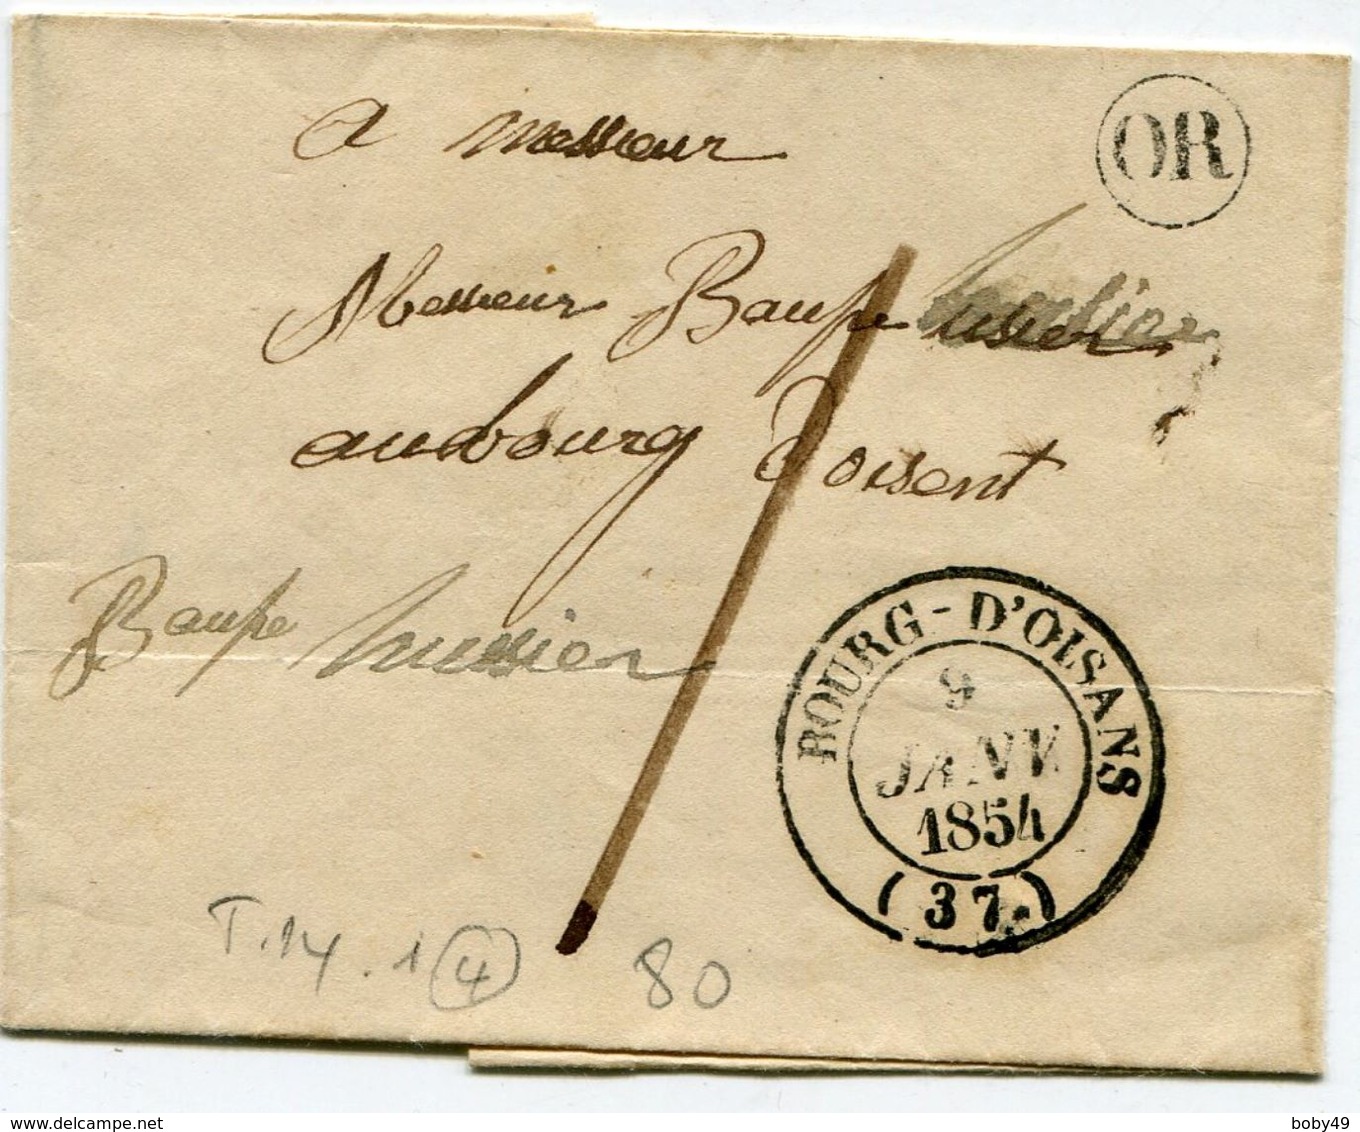 a messieur
OR
Messieur Baupe hussier
aubourg Doisent
Baupe hussier
BOURG-D'OISANS
9
JANV
1854
(37)
T.14.1 (4) 80
boby49